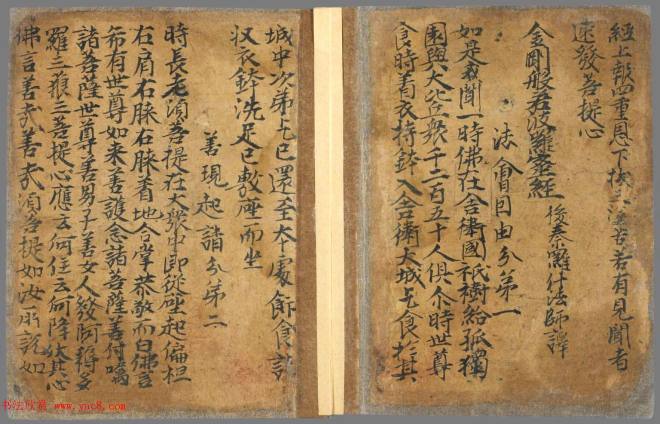 經上報四重恩下採三塗苦若有見聞者
速發菩提心
金剛般若波羅蜜經
後秦羅什法師譯
法會因由分第一
如是我聞一時佛在舍衛國祇樹給孤獨
園與大比丘衆千二百五十人俱尒時世尊
食時着衣持鉢入舍衛大城乞食於其
城中次弟乞已還至本處飰食訖
収衣鉢洗足已敷座而坐
善現起請分第二
時長老湏菩提在大衆中即從座起偏袒
右肩右膝右膝着地合掌恭敬而白佛言
希有世尊如来善護念諸菩薩善付囑
諸菩薩世尊善男子善女人發阿耨多
羅三藐三菩提心應云何住云何降伏其心
佛言善哉善哉湏菩提如汝所說如
书法欣赏 www.yac8.com